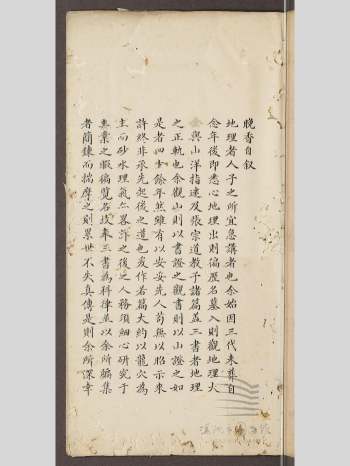 晚香自叙
地理者人子之所宜急講者也余始因三代未葬自
念年後即悉心地理出則徧歷名墓入則觀地理大
與山洋指迷及張宗道教子諸篇並三書者地理
之正軌也余觀山則以書證之觀書則以山證之如
是者四十餘年然雖有以安先人苟無以昭示來
許終非承先起後之道也爰作若篇大約以龍穴為
主而砂水理氣亦畧詳之後之人務須細心研究于
無業之暇徧覽名坟奉三書為科律並以余所編集
者簡鍊而揣摩之則累世不失真傳是則余所深幸